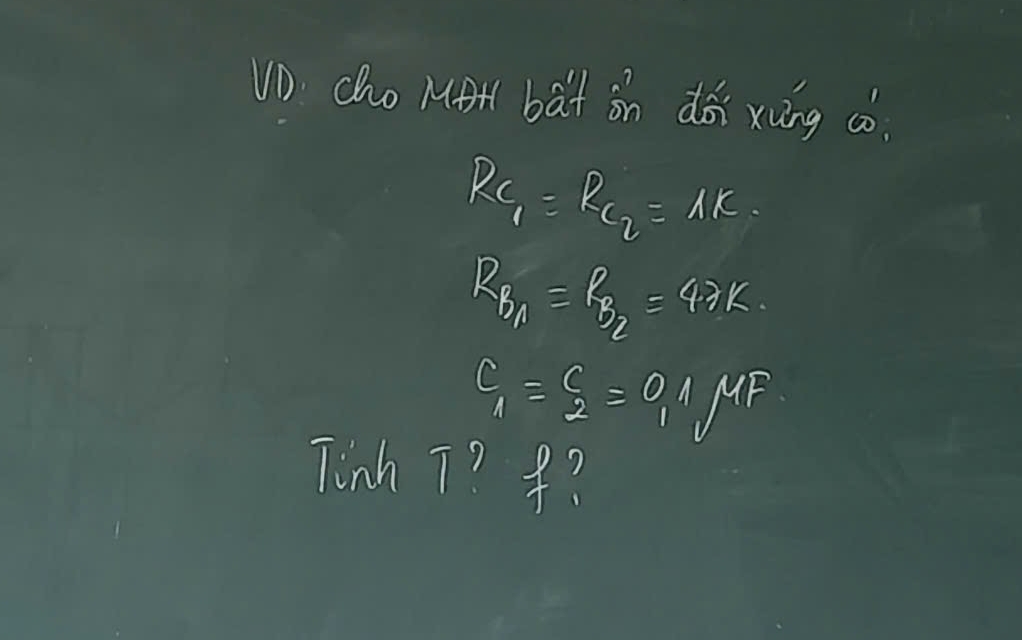 VD: cho MĐH bất ổn đối xứng có:
RC1 = RC2 = 1K.
RB1 = RB2 = 47K.
C1 = C2 = 0,1 μF.
Tính T? f?